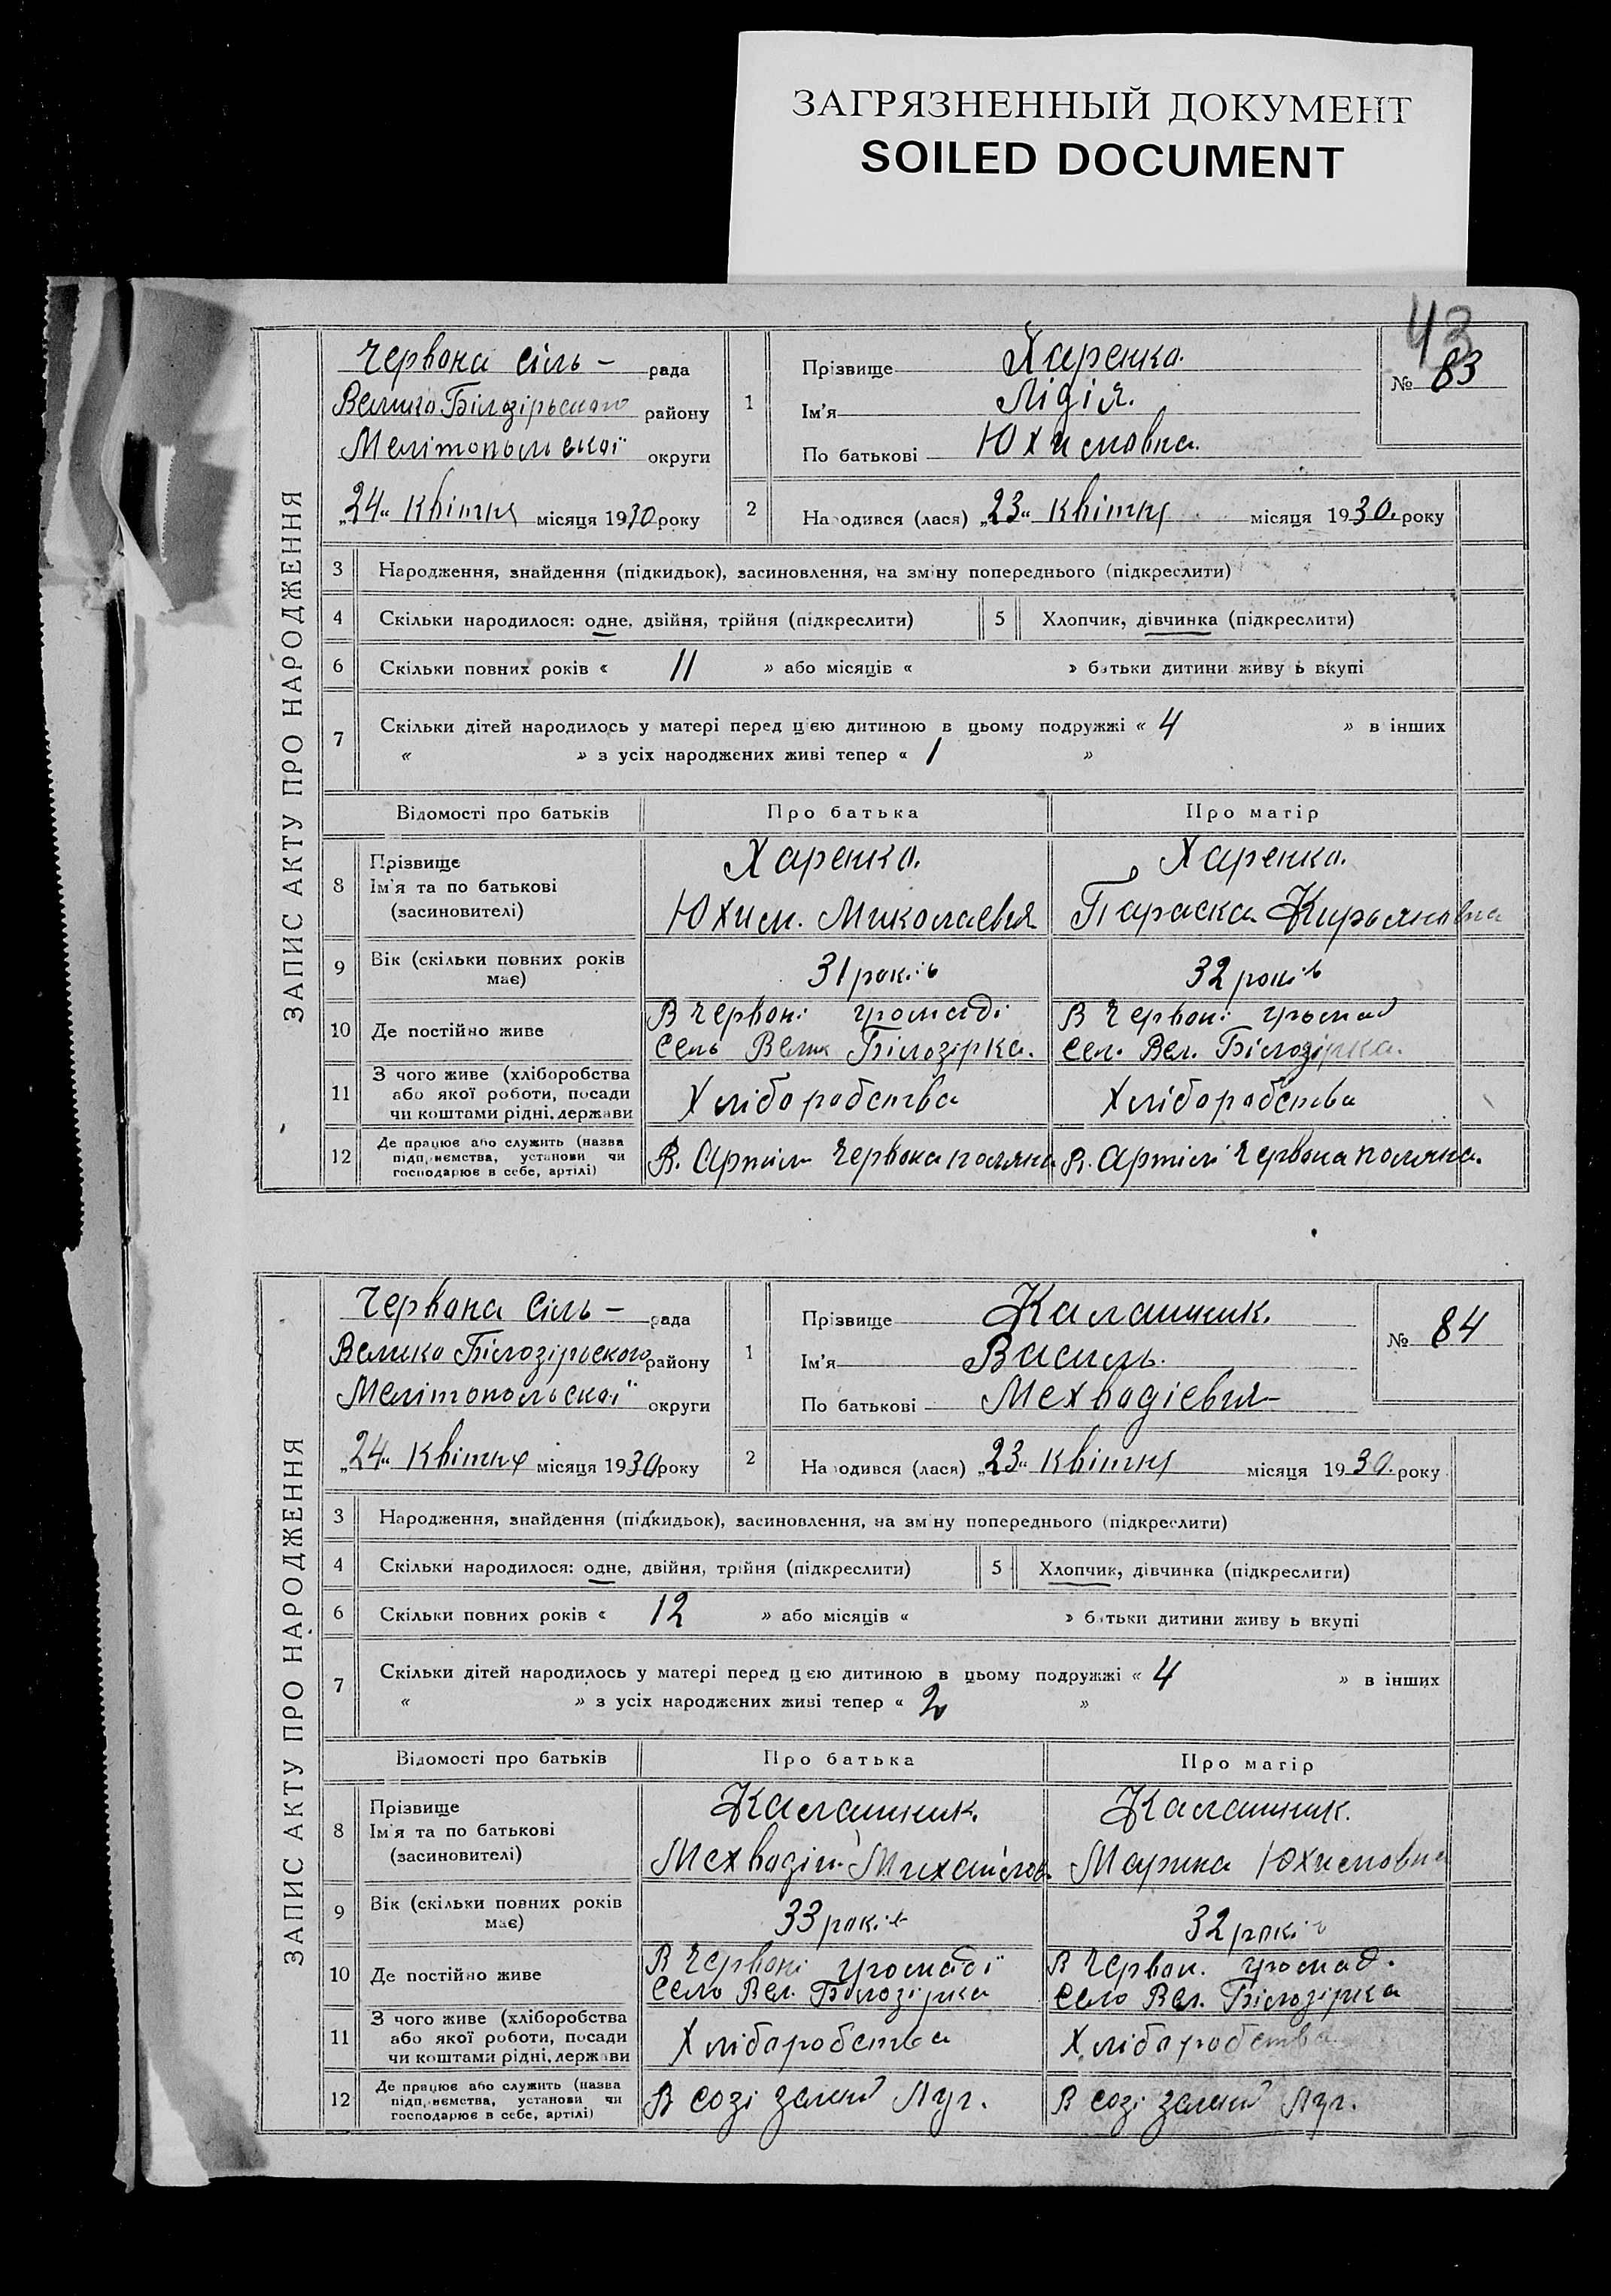 ЗАГРЯЗНЕННЫЙ ДОКУМЕНТ
SOILED DOCUMENT
43
ЗАПИС АКТУ ПРО НАРОДЖЕННЯ
Червона сіль – рада
Велико Білозірського району
Мелітопольської округи
„24" квітня місяця 1930 року
1 Прізвище Харенко.
Ім'я Лідія.
По батькові Юхимовна.
№ 83
2 Народився (лася) „23" квітня місяця 1930. року
3 Народження, знайдення (підкидьок), засиновлення, на зміну попереднього (підкреслити)
4 Скільки народилося: одне, двійня, трійня (підкреслити) 5 Хлопчик, дівчинка (підкреслити)
6 Скільки повних років « 11 » або місяців « » батьки дитини живу ь вкупі
7 Скільки дітей народилось у матері перед цією дитиною в цьому подружжі « 4 » в інших
« » з усіх народжених живі тепер « 1 »
Відомості про батьків Про батька Про матір
8 Прізвище Ім'я та по батькові (засиновителі)
Харенко. Харенко.
Юхим. Миколаевия Параска Кирьяновна
9 Вік (скільки повних років має) 31 років 32 років
10 Де постійно живе
В Червоні громаді В Червоні громад
Сель Велик Білозірка. Сел. Вел. Білозірка.
11 З чого живе (хліборобства або якої роботи, посади чи коштами рідні, держави
Хліборобства Хліборобства
12 Де працює або служить (назва підприємства, установи чи господарює в себе, артілі)
В. Артіли Червона поляна В. Артіли Червона поляна.
ЗАПИС АКТУ ПРО НАРОДЖЕННЯ
Червона Сіль – рада
Велико Білозірського району
Мелітопольскої округи
„24" квітня місяця 1930 року
1 Прізвище Калашник.
Ім'я Василь.
По батькові Мехводіевия
№ 84
2 Народився (лася) „23" квітня місяця 1930. року
3 Народження, знайдення (підкидьок), засиновлення, на зміну попереднього (підкреслити)
4 Скільки народилося: одне, двійня, трійня (підкреслити) 5 Хлопчик, дівчинка (підкреслити)
6 Скільки повних років « 12 » або місяців « » батьки дитини живу ь вкупі
7 Скільки дітей народилось у матері перед цією дитиною в цьому подружжі « 4 » в інших
« » з усіх народжених живі тепер « 2 »
Відомості про батьків Про батька Про матір
8 Прізвище Ім'я та по батькові (засиновителі)
Калашник. Калашник.
Мехводій Михайлов. Марина Юхимовна
9 Вік (скільки повних років має) 33 років 32 років
10 Де постійно живе
В Червоні громаді В Червон. громад.
Село Вел. Білозірка Село Вел. Білозірка
11 З чого живе (хліборобства або якої роботи, посади чи коштами рідні, держави
Хліборобства Хліборобства
12 Де працює або служить (назва підприємства, установи чи господарює в себе, артілі)
В созі зелений Луг. В созі зелений Луг.